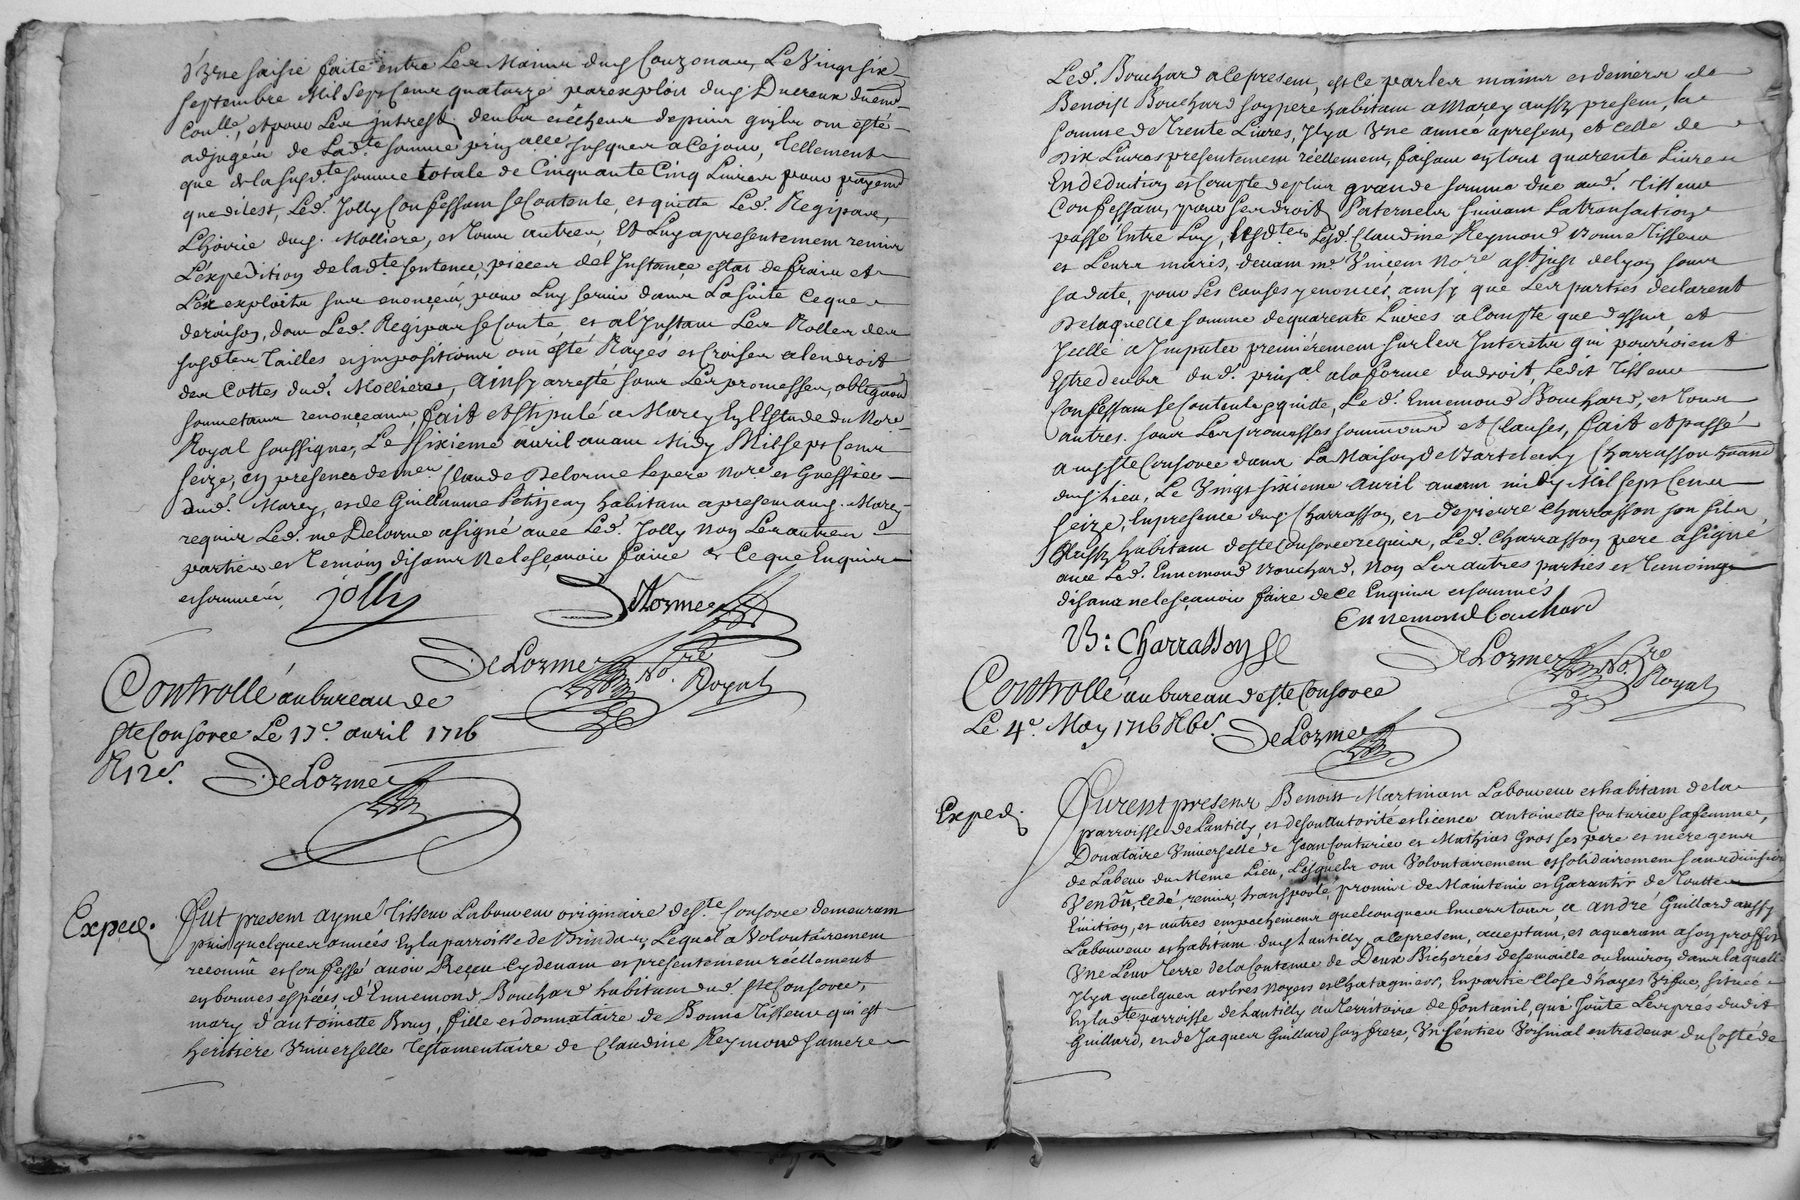 d'Une saisie faite entre Les Mains dud Couzonan, Le Vingt six
septembre Mil Sept Cent quatorze par exploit dud. Ducreux
Coulle, et pour Les Interest deubs escheus depuis quils ont esté
adjugés de Lad.te somme prin.alle jusques a ce jour, Tellement
que de la susd.te somme totale de Cinquante Cinq Livres pour payem.t
que dit est, Led. Jolly Confessant se Contente, et quitte Led. Regipas,
L'hoirie dud. Molliere, et tous autres, Et Luy a presentement remis
L'expedition de lad.te sentence, pieces de l'Instance, estat de frais et
Les exploits sus enonçés, pour Luy servir dans La suite Ce que
de raison, dont Led. Regipas se Conte, et a l'Instant Les Rolles des
susd.tes Tailles et impositions ont esté Rayés et Croisés a lendroit
des Cottes dud. Molliere, Ainsy arresté sous Les promesses, obliga.on
soumetans renonçeans, fait et stipulé a Marcy En l'Estude du No.re
Royal soussigné, Le sixieme avril avant Midy Mil sept Cens
seize, en presence de me. Claude Delorme le pere No.re et Greffier
dud. Marcy, et de Guillaume Petitjean habitant a present aud. Marcy
requis Led. me Delorme a signé avec Led. Jolly Non Les autres
parties et Temoins disant Ne le sçavoir faire de Ce que Enquis
et sommés,
jolly
DeLorme
DeLorme No.re Royal
Controllé au bureau de
ste Consorce Le 17e. avril 1716
R 12 s.
DeLorme
Exped.
Fut present aymé Tisseur Laboureur originaire de s.te Consorce demeurant
puis quelques années En la parroisse de Brindas, Lequel a Volontairement
reconnu et Confessé avoir Receu Cy devant et presentement reellement
en bonnes especes d'Ennemond Bouchard habitant dud ste Consorce,
mary d'antoinette Brun, fille et donnataire de Bonne Tisseur qui est
heritiere Universelle Testamentaire de Claudine Reymond sa mere
Led. Bouchard a ce present, est Ce par les mains et deniers de
Benoist Bouchard son pere habitant a Marcy aussy present, la
somme de Trente Livres, Il y a Une année a present, et Celle de
Dix Livres presentement réellement, faisant en tout quarente Livres
En deduction et Compte de plus grande somme due aud. Tisseur
Confessant, pour ses droits Paternels suivant La transaction
passé Entre Luy, Lesd.tes Claudine Reymond Bonne Tisseur
et Leurs maris, devant me Vincent No.re a s.t just de Lyon sous
sa date, pour Les Causes y enoncés, ainsy que Les parties declarent
De laquelle somme de quarente Livres a Compte que dessus, et
Jcelle a Imputer premiérement sur les Interets qui pourroient
Estre deubs du d. prin.al a la forme du droit, Ledit Tisseur
Confessant se Contente et quitte, Le d. Ennemond Bouchard, et tous
autres. sous Les promesses soummons et Clauses, fait et passé
a ste Consorce dans La Maison de Bartelemy Charrasson
dud Lieu, Le Vingt sixieme avril avant midy Mil sept Cens
seize, En presence dud. Charrasson, et de pierre Charrasson son fils,
aussy habitant de ste Consorce requis, Led. Charrasson pere a signé
avec Led. Ennemond Bouchard, Non Les autres parties et Temoings
disans ne le sçavoir faire de Ce Enquis et sommés
Ennemond bouchard
B: Charrasson
DeLorme No.re Royal
Controllé au bureau de s.te Consorce
Le 4e. May 1716 R 6 s.
DeLorme
Exped.
Furent presens Benoist Martinant Laboureur et habitant de la
parroisse de Lantilly, et de son autorité et licence antoinette Couturier sa femme,
Donataire Universelle de Jean Couturier et Mathias Gros ses pere et mere gens
de Labeur du Meme Lieu, Lesquels ont Volontairement et solidairement sans division
Vendu, Cedé, remis, transporté, promis de Maintenir et Garantir de Toutes
Eviction, et autres empechemens quelconques Envers tous, a andré Guillard aussy
Laboureur et habitant dud Lantilly a ce present, acceptant, et aquerant a son proffit
Une Leur Terre de la Contenue de Deux Bicherées de semaille ou Environ dans laquelle
Il y a quelques arbres Noyers et Chatagniers, En partie Close d'hayes Vifve, située
En lad.te parroisse de Lantilly au Territoire de fontanil, qui Jointe Les pres dudit
Guillard, et de Jaques Guillard son frere, Un sentier Voisinal entre deux du Costé de